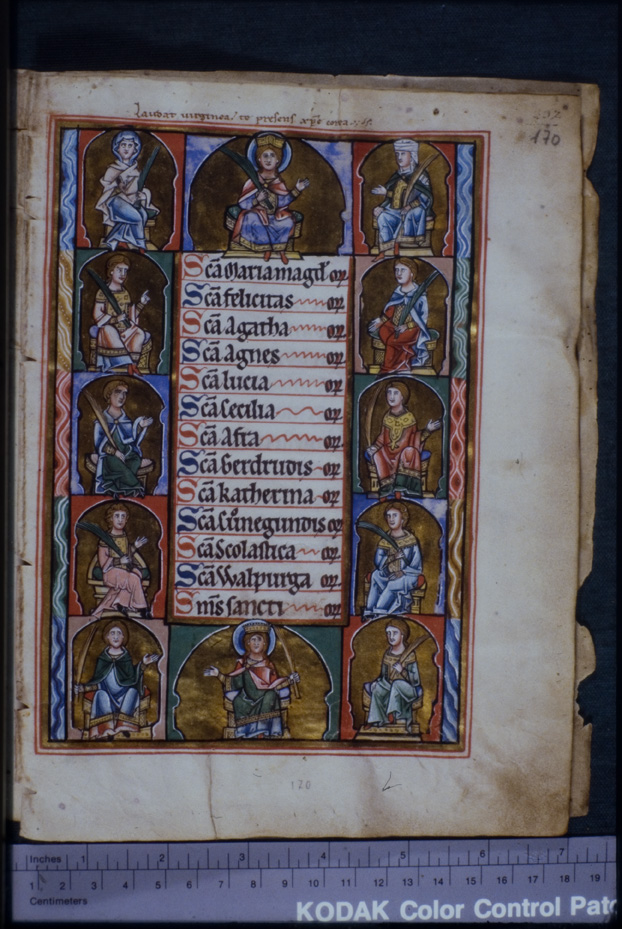 Laudat virginea te presens
170
Scā Maria magd' or̄
Scā felicitas or̄
Scā Agatha or̄
Scā Agnes or̄
Scā lucia or̄
Scā Cecilia or̄
Scā Afra or̄
Scā Gerdrudis or̄
Scā katherina or̄
Scā Cunegundis or̄
Scā Scolastica or̄
Scā Walpurga or̄
Om̄s sancti or̄
120
Inches 1 2 3 4 5 6 7
1 2 3 4 5 6 7 8 9 10 11 12 13 14 15 16 17 18 19
Centimeters
KODAK Color Control Patc